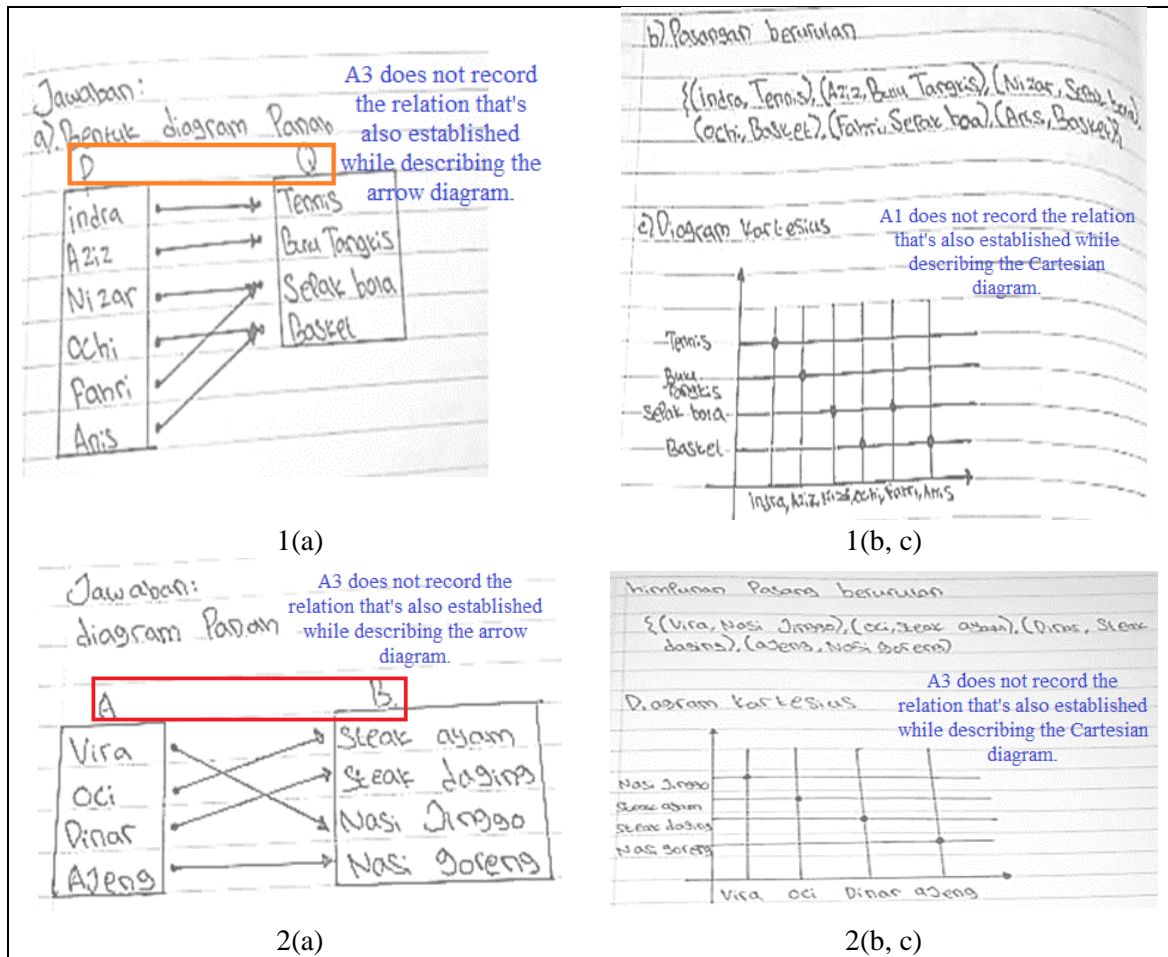 Jawaban:
a). Bentuk diagram Panah
P Q
indra
Aziz
Nizar
Ochi
Fahri
Anis
Tennis
Bulu Tangkis
Sepak bola
Basket
A3 does not record
the relation that's
also established
while describing the
arrow diagram.
1(a)
b). Pasangan berurutan
{(indra, Tennis), (Aziz, Bulu Tangkis), (Nizar, Sepak bola),
(Ochi, Basket), (Fahri, Sepak boa), (Anis, Basket)}
c) Diagram kartesius
A1 does not record the relation
that's also established while
describing the Cartesian
diagram.
Tennis
Bulu
Tangkis
Sepak bola
Basket
indra, Aziz, Nizar, Ochi, Fahri, Anis
1(b, c)
Jawaban:
diagram Panah
A3 does not record the
relation that's also established
while describing the arrow
diagram.
A B
Vira
Oci
Dinar
Ajeng
Steak ayam
Steak daging
Nasi Jinggo
Nasi goreng
2(a)
himpunan Pasang berurutan
{(Vira, Nasi Jinggo), (Oci, Steak ayam), (Dinar, Steak
daging), (ajeng, Nasi goreng)
Diagram kartesius
A3 does not record the
relation that's also established
while describing the Cartesian
diagram.
Nasi Jinggo
Steak ayam
Steak daging
Nasi goreng
Vira Oci Dinar ajeng
2(b, c)